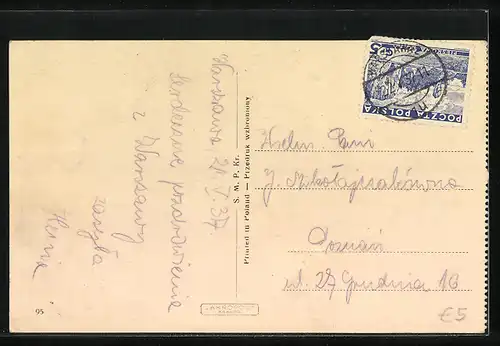 Warszawa, 21. V. 37
Serdeczne pozdrowienia
z Warszawy
zasyła
Henia
S. M. P. Kr.
Printed in Poland — Przedruk wzbroniony
POCZTA POLSKA
25
Pani
J. Mikołajczakówna
Poznań
ul. 27 Grudnia 16
95
€5